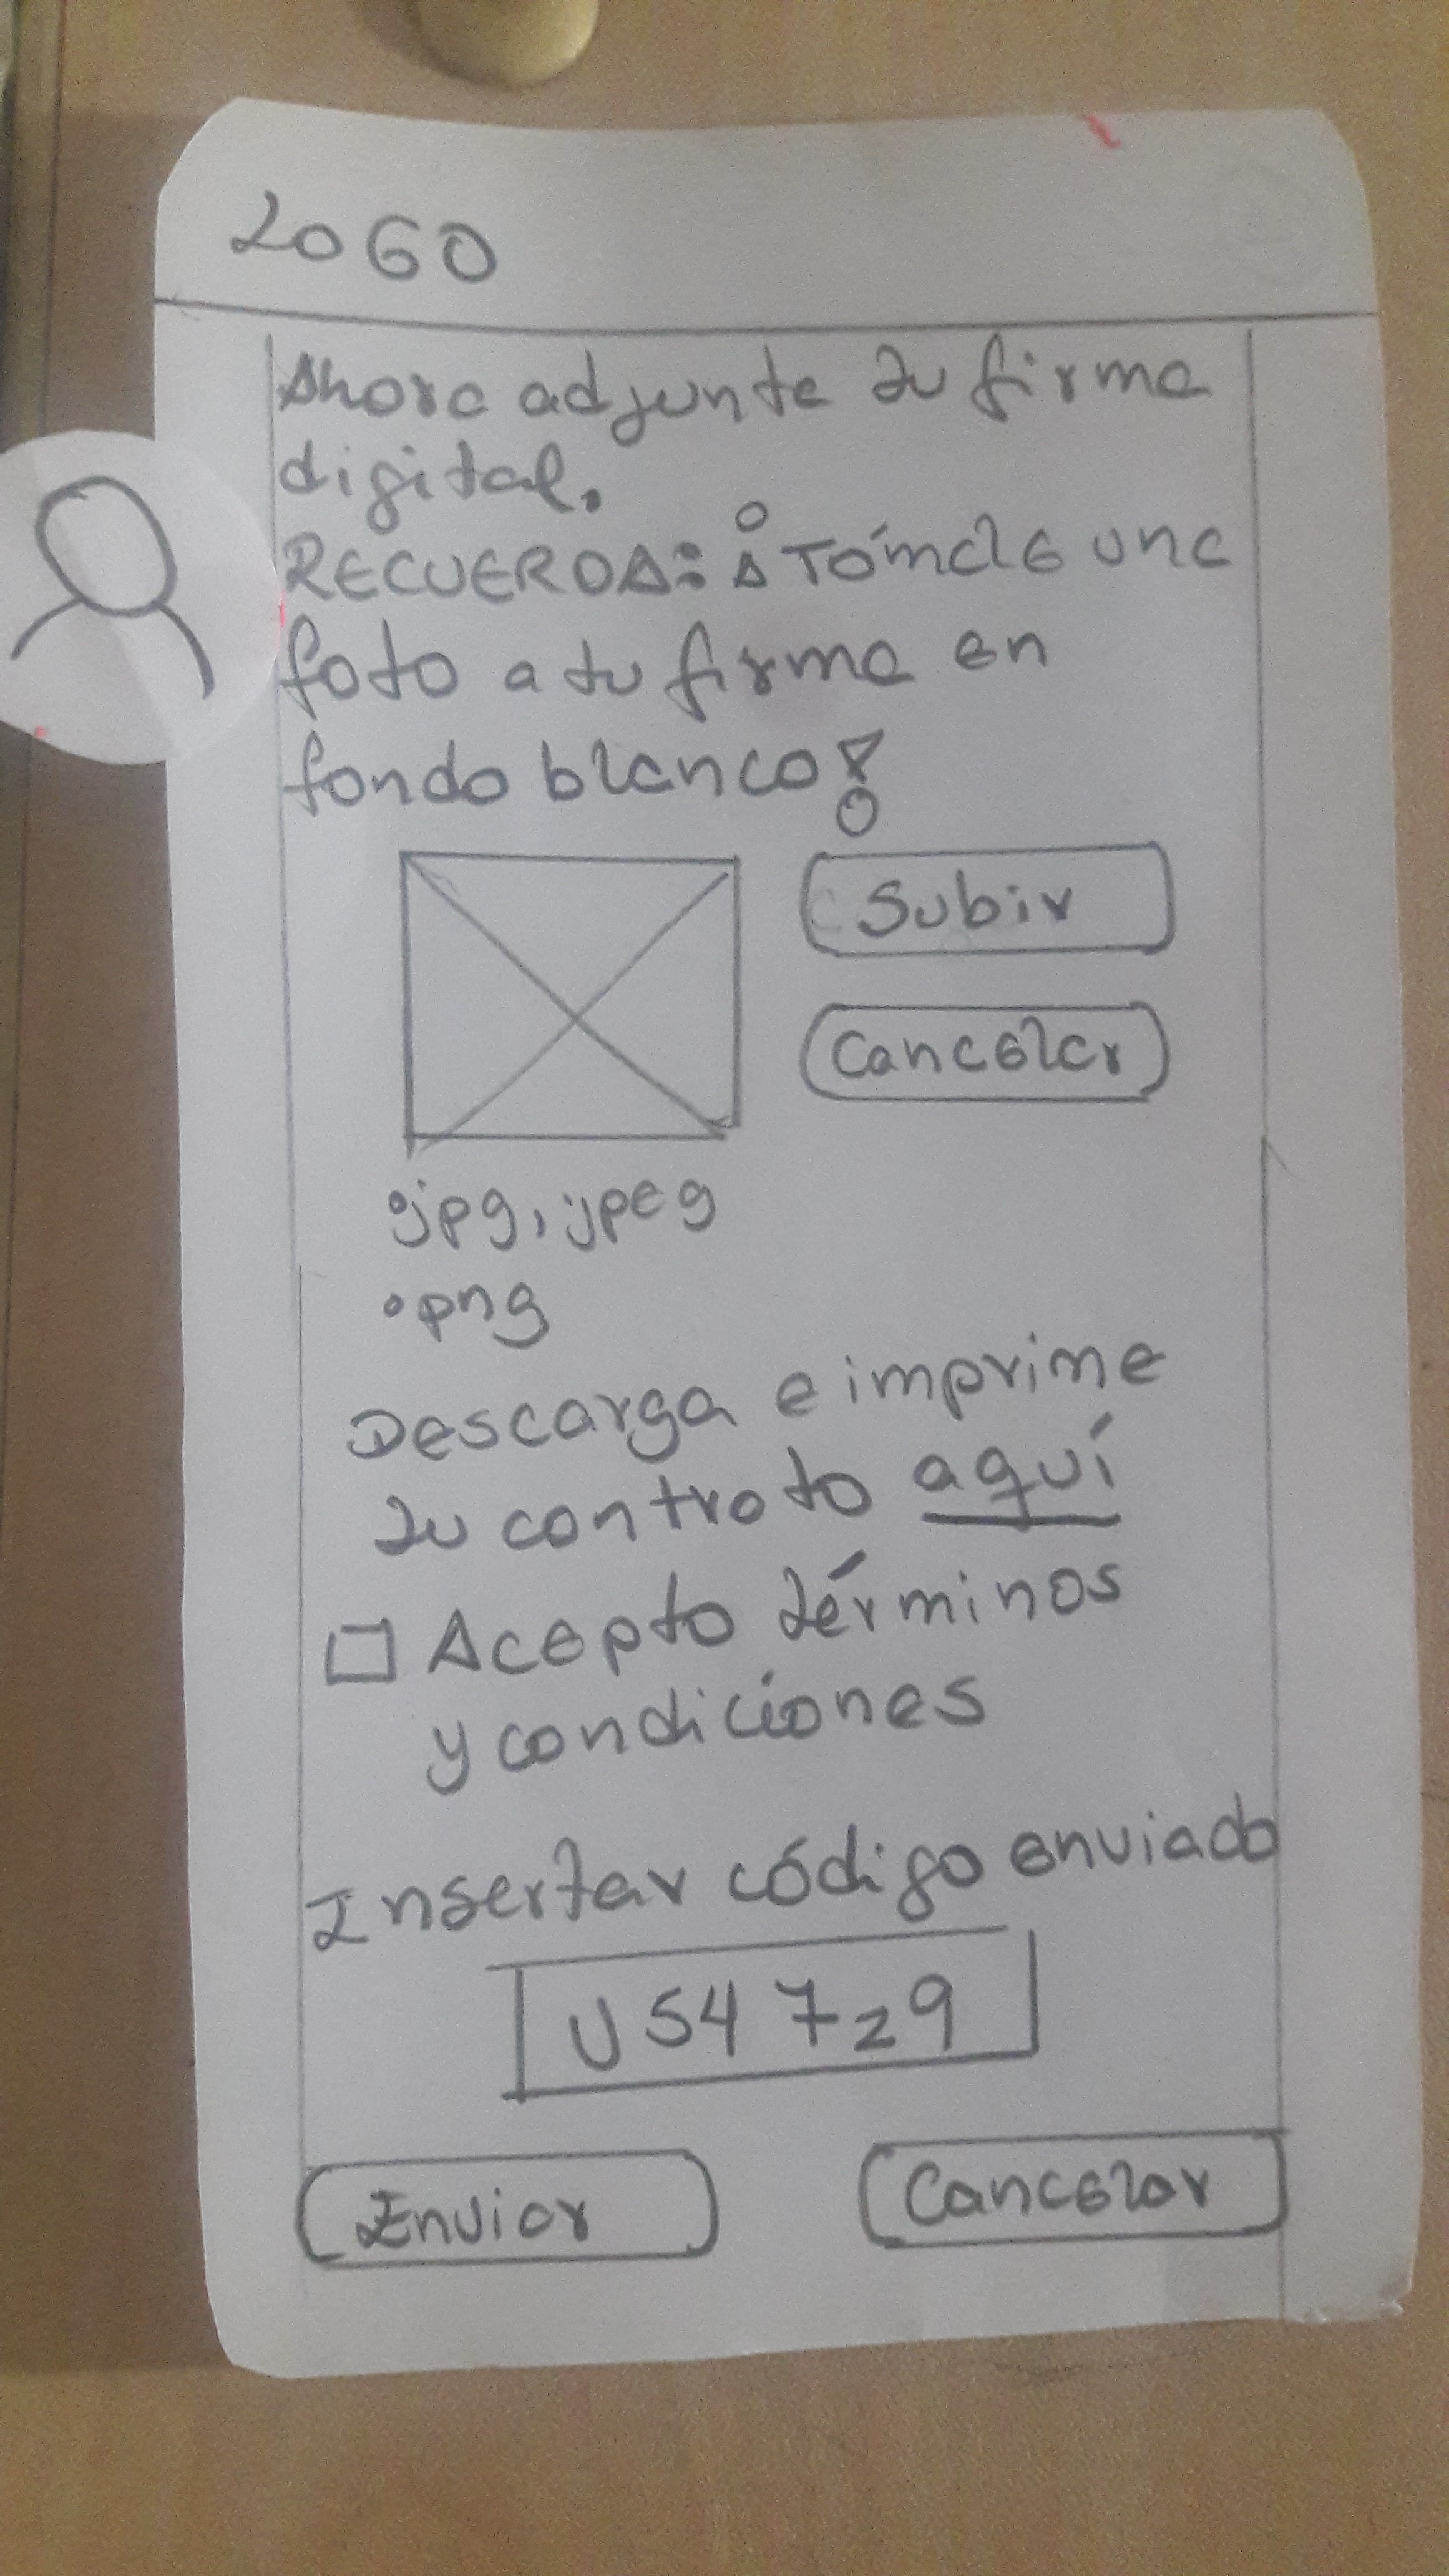 LOGO
Ahora adjunta tu firma
digital.
RECUERDA: ¡Tómale una
foto a tu firma en
fondo blanco!
Subir
Cancelar
.jpg, jpeg
.png
Descarga e imprime
tu contrato aquí
Acepto términos
y condiciones
Insertar código enviado
U54729
Enviar
Cancelar